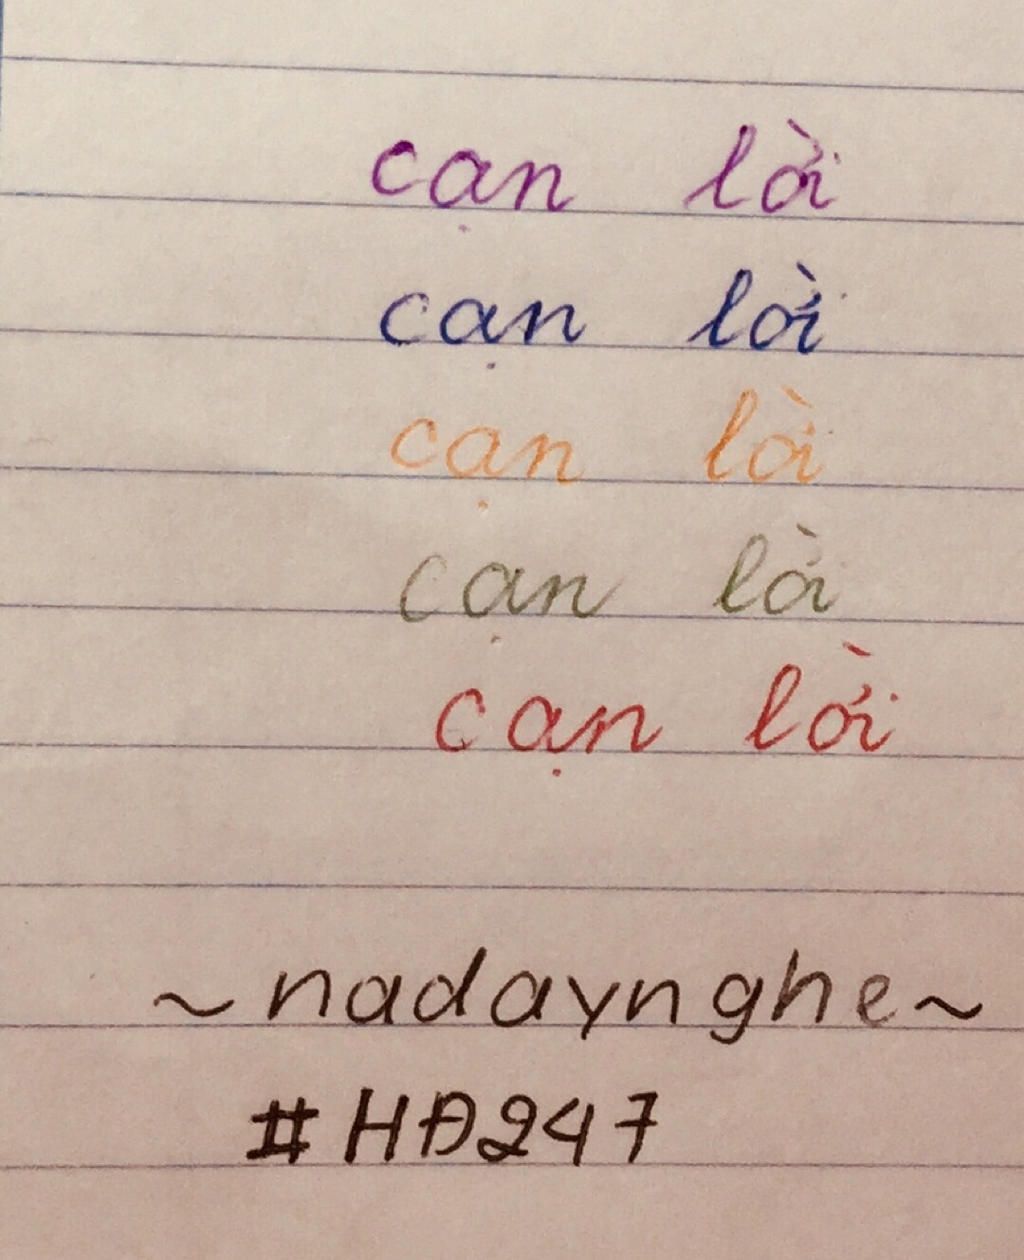 cạn lời
cạn lời
cạn lời
cạn lời
cạn lời
~nadaynghe~
#HĐ247